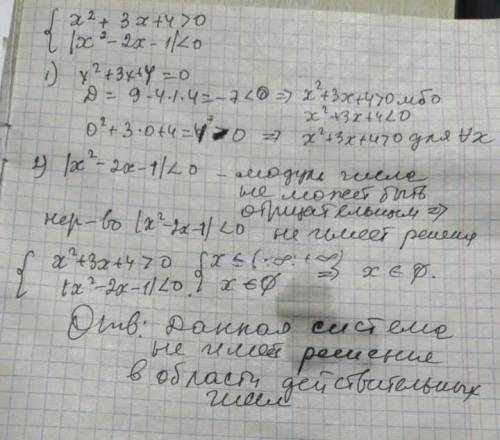 { x² + 3x + 4 > 0
|x² - 2x - 1| < 0
1) x² + 3x + 4 = 0
D = 9 - 4·1·4 = -7 < 0 => x² + 3x + 4 > 0 либо
x² + 3x + 4 < 0
0² + 3·0 + 4 = 4 > 0 => x² + 3x + 4 > 0 для ∀x
2) |x² - 2x - 1| < 0 - модуль числа
не может быть
отрицательным =>
нер-во |x² - 2x - 1| < 0 не имеет решения
{ x² + 3x + 4 > 0 { x ∈ (-∞; +∞) => x ∈ ∅.
|x² - 2x - 1| < 0. x ∈ ∅
Отв: Данная система
не имеет решение
в области действительных
чисел